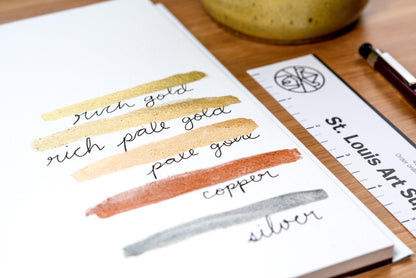 rich gold
rich pale gold
pale gold
copper
silver
St. Louis Art Su